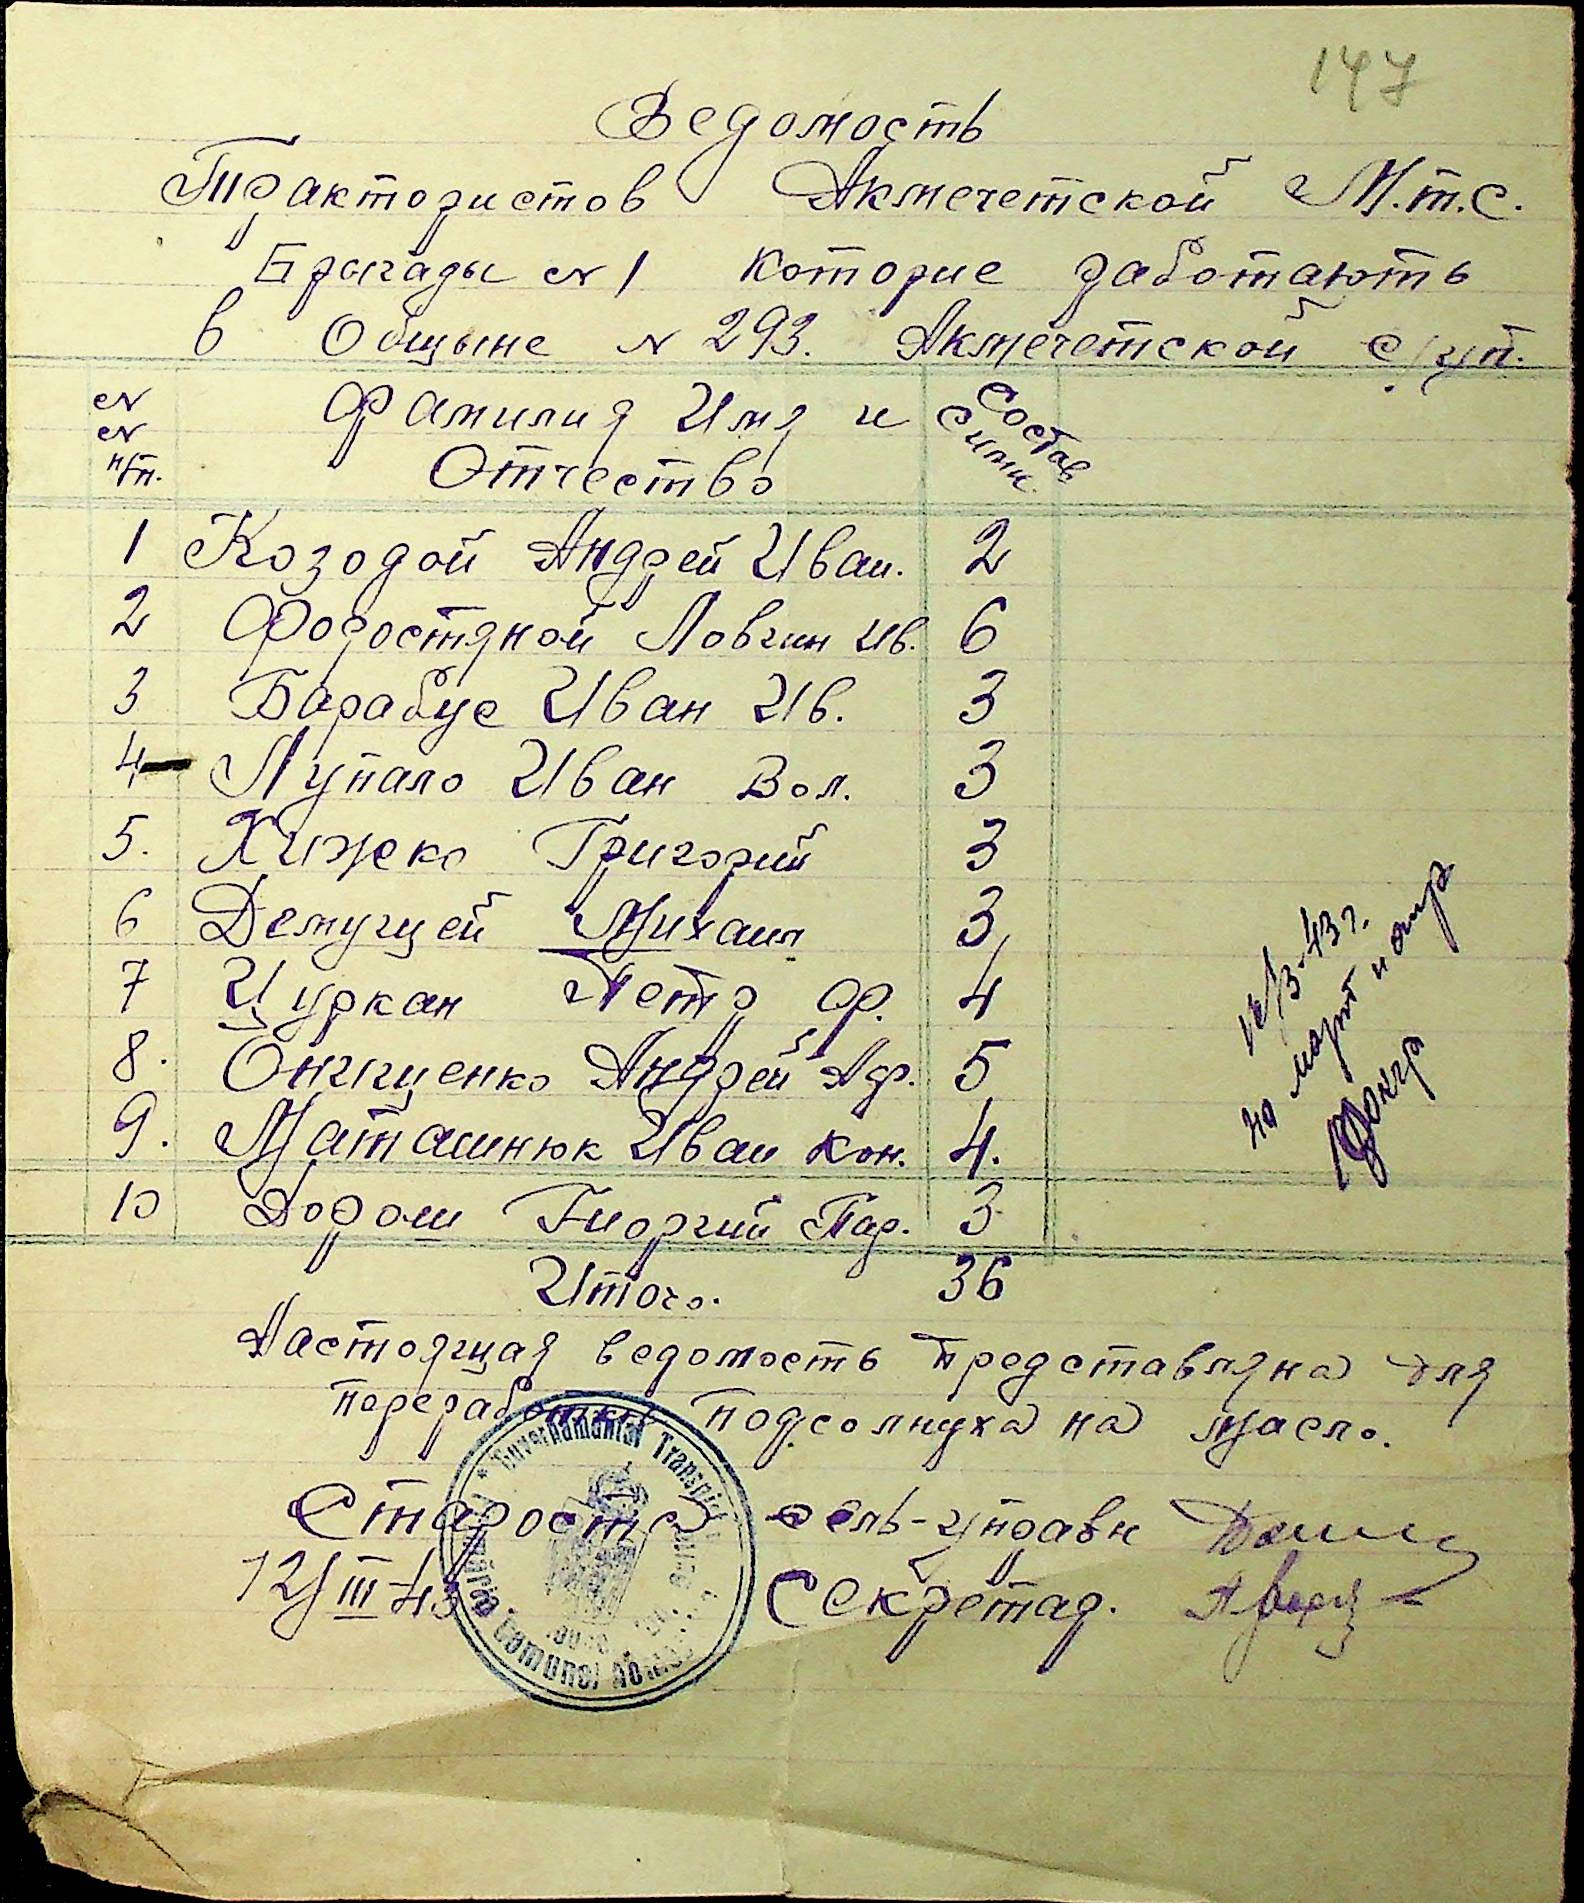 147
Ведомость
Трактористов Акмечетской М.т.с.
Брыгады № 1 которие работають
в Общыне № 293. Акмечетской с/уп.
№ № п/п. Фамилия Имя и Отчество Состав сими.
1 Козодой Андрей Иван. 2
2 Форостяной Ловгин Ив. 6
3 Барабус Иван Ив. 3
4 Лупало Иван Вол. 3
5. Хижко Григорий 3
6 Демуцией Михаил 3
7 Цуркан Петр Ф. 4
8. Онищенко Андрей Аф. 5
9. Маташнюк Иван Кон. 4.
10 Дорош Гиоргий Пар. 3
Итого. 36
Настоящая ведомость представляна для
переработки подсолнуха на масло.
Староста сель-управл
12/III-43 Секретар.
Guvernământul Transnistriei
Primăria Comunei
/3-43 г.
на март